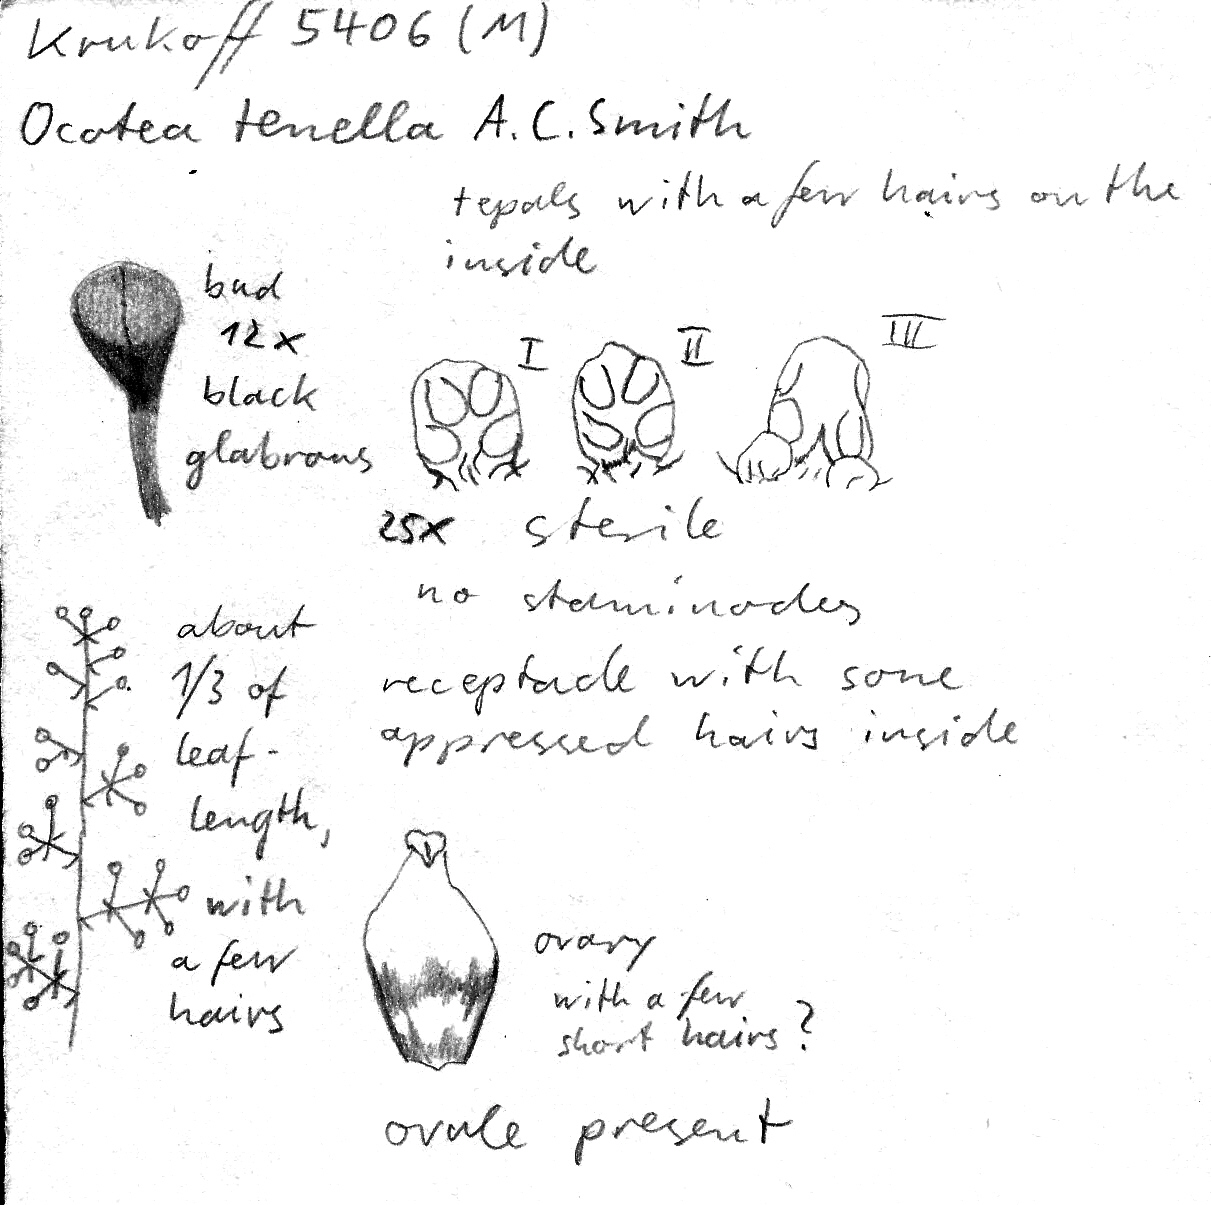 Krukoff 5406 (M)
Ocotea tenella A.C. Smith
tepals with a few hairs on the
inside
bud
12x
black
glabrous
I
II
III
25x sterile
no staminodes
receptacle with some
appressed hairs inside
about
1/3 of
leaf-
length,
with
a few
hairs
ovary
with a few
short hairs?
ovule present